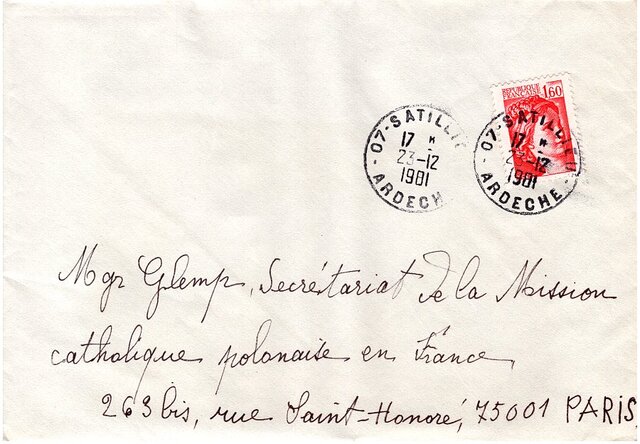 REPUBLIQUE
FRANCAISE 1,60
07-SATILLIEU
17 H
23-12
1981
ARDECHE
07-SATILLIEU
17 H
23-12
1981
ARDECHE
Mgr Glemp, Secrétariat de la Mission
catholique polonaise en France,
263 bis, rue Saint-Honoré, 75001 PARIS